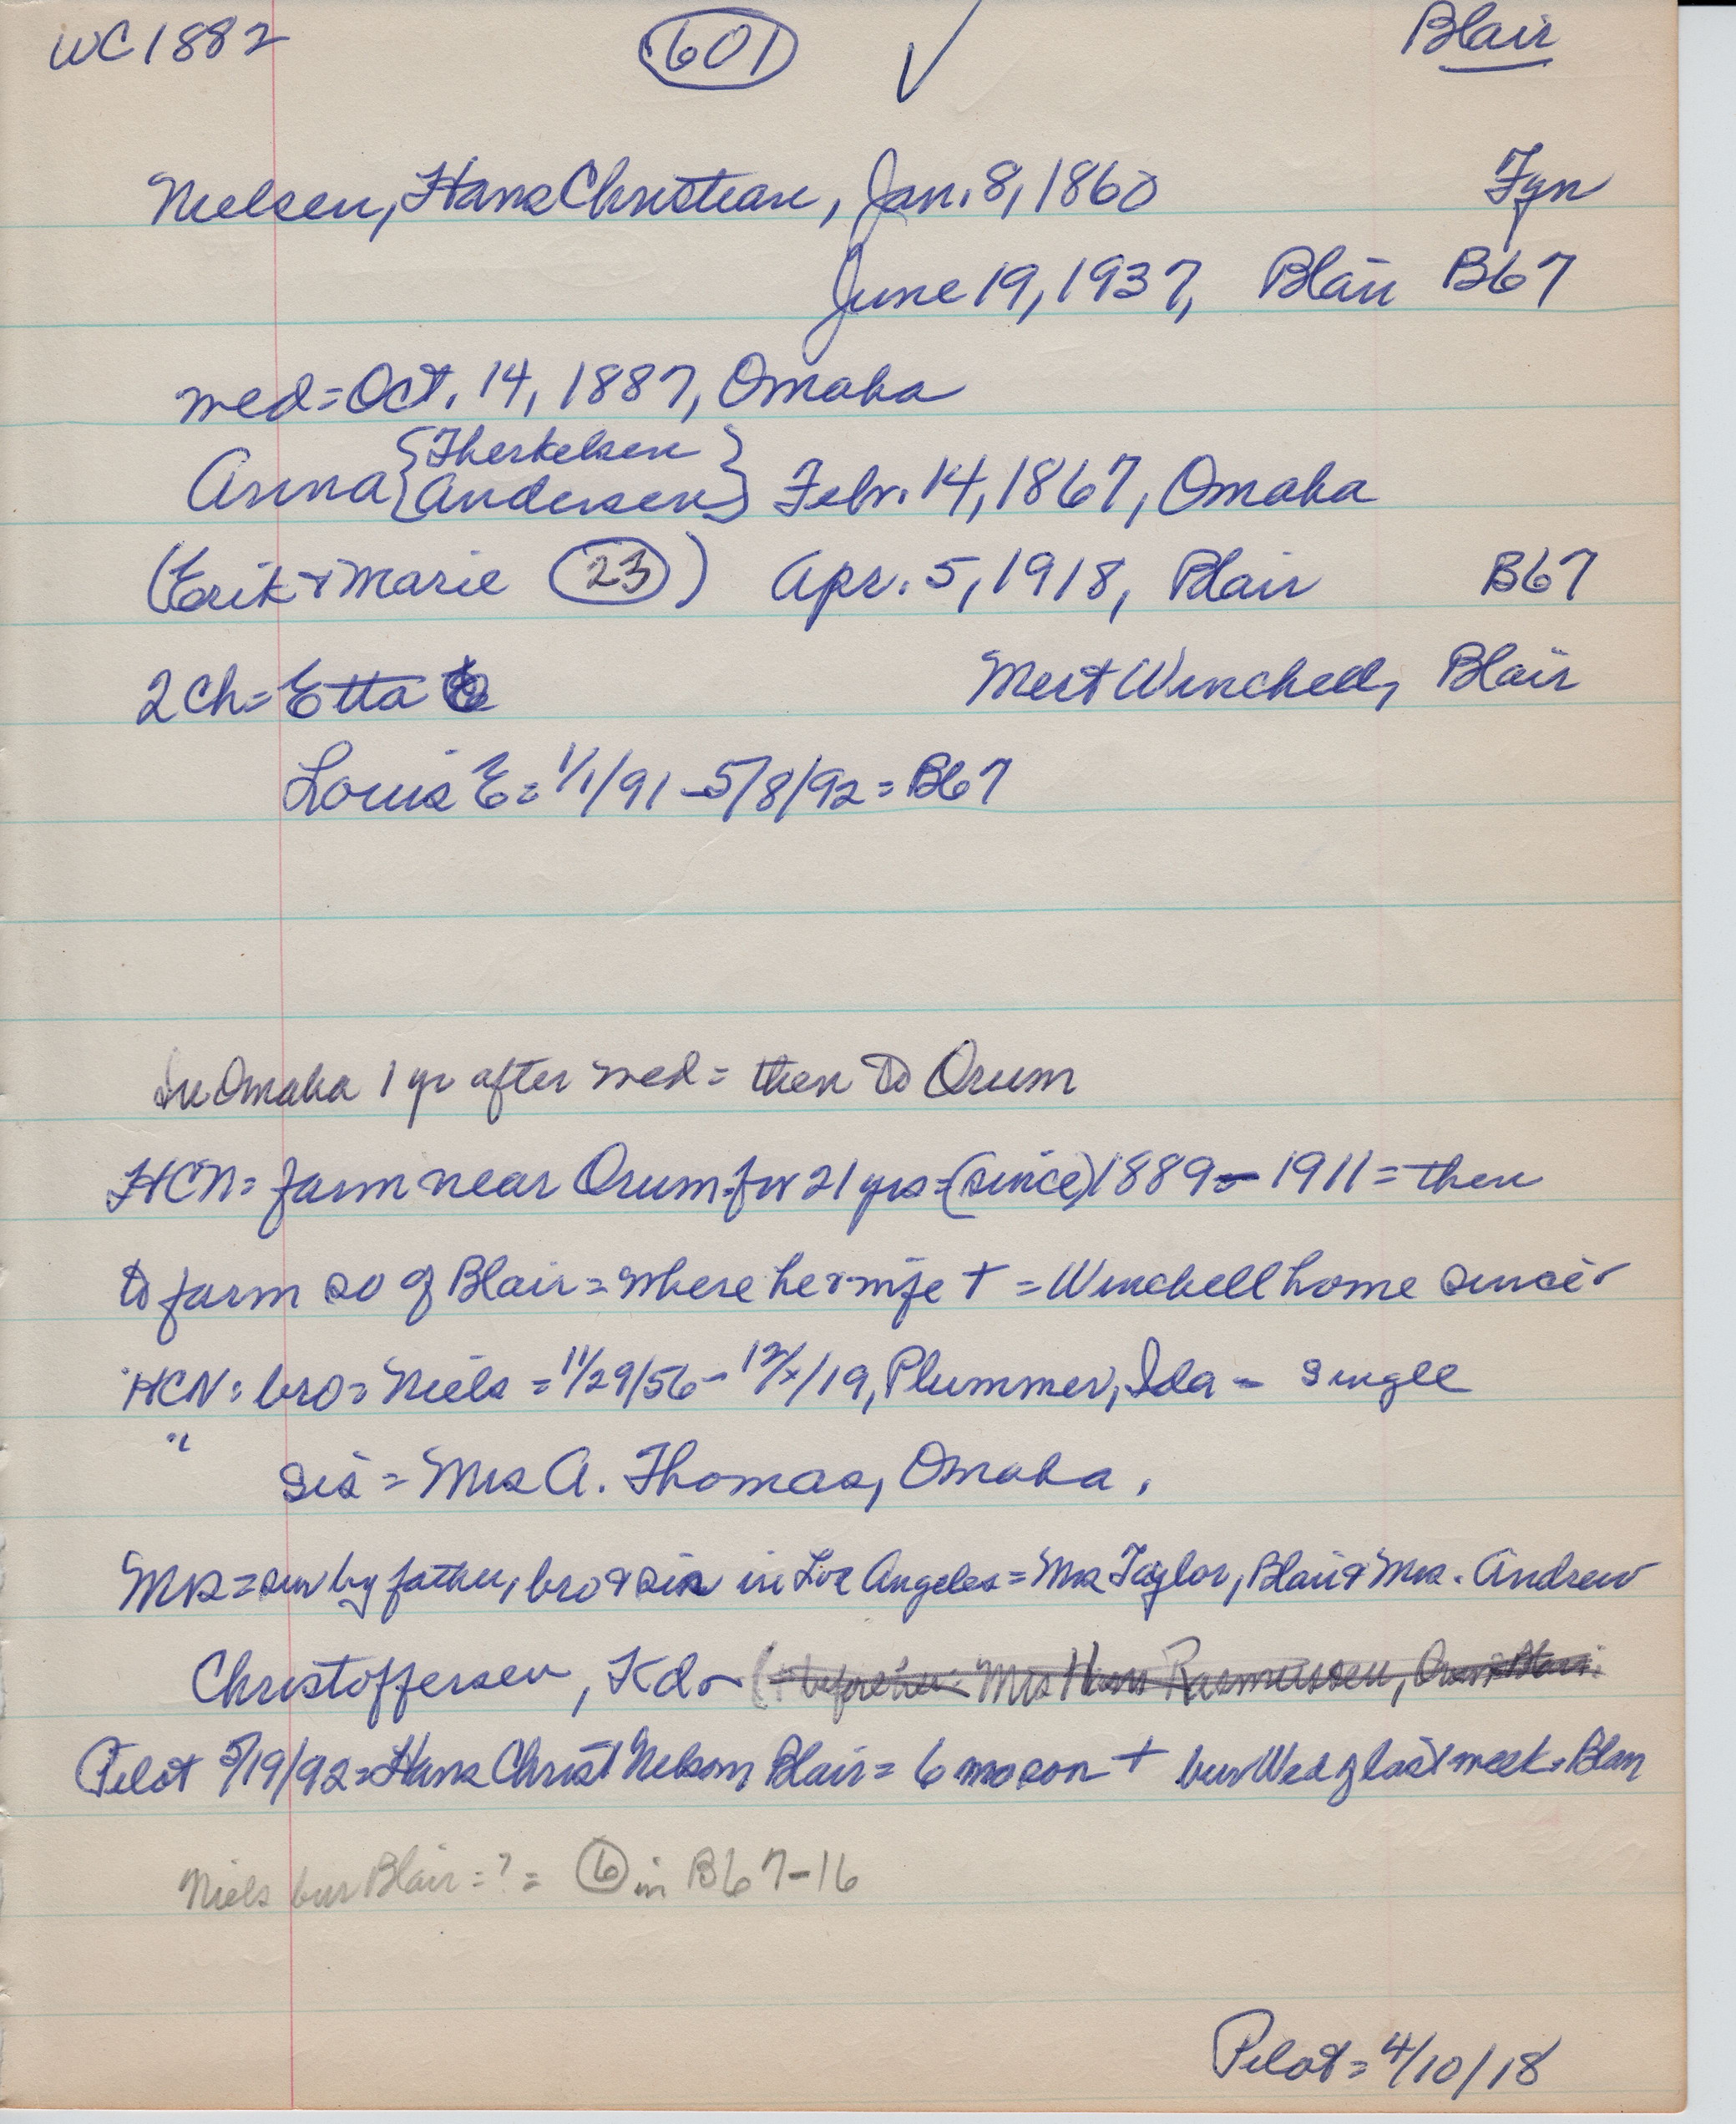 WC 1882 (601) ✓ Blair
Nielsen, Hans Christian, Jan. 8, 1860 Fyn
June 19, 1937, Blair B67
wed = Oct. 14, 1887, Omaha
Anna { Therkelsen
Andersen } Febr. 14, 1867, Omaha
(Erik & Marie (23)) Apr. 5, 1918, Blair B67
2 ch = Etta Mert Winchell, Blair
Louis E = 1/1/91 - 5/8/92 = B67
In Omaha 1 yr after wed = then to Orum
HCN = farm near Orum for 21 yrs = (since) 1889 - 1911 = then
to farm so of Blair = where he & wife + = Winchell home since
HCN = bro = Niels = 11/29/56 - 12/x/19, Plummer, Ida - single
" sis = Mrs A. Thomas, Omaha.
Mrs = sur by father, bro & sis in Los Angeles = Mrs Taylor, Blair & Mrs. Andrew
Christoffersen, Kd Mrs Hans Rasmussen,
Pilot 5/19/92 = Hans Christ Nelson Blair = 6 mo son + bur Wed of last week = Blair
Niels bur Blair = ? = (6) in B67-16
Pilot = 4/10/18